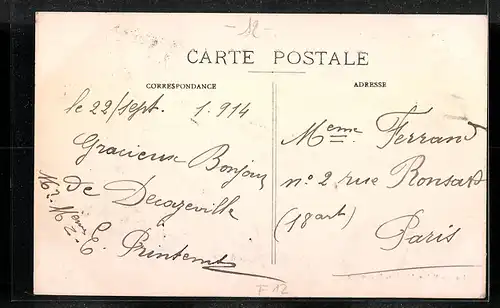 - 12 -
CARTE POSTALE
CORRESPONDANCE
ADRESSE
le 22/sept. 1.914
Gracieux Bonjour
de Decazeville
E. Printemps
Meme Ferrand
no 2 rue Ronsard
(18 art)
Paris
F12